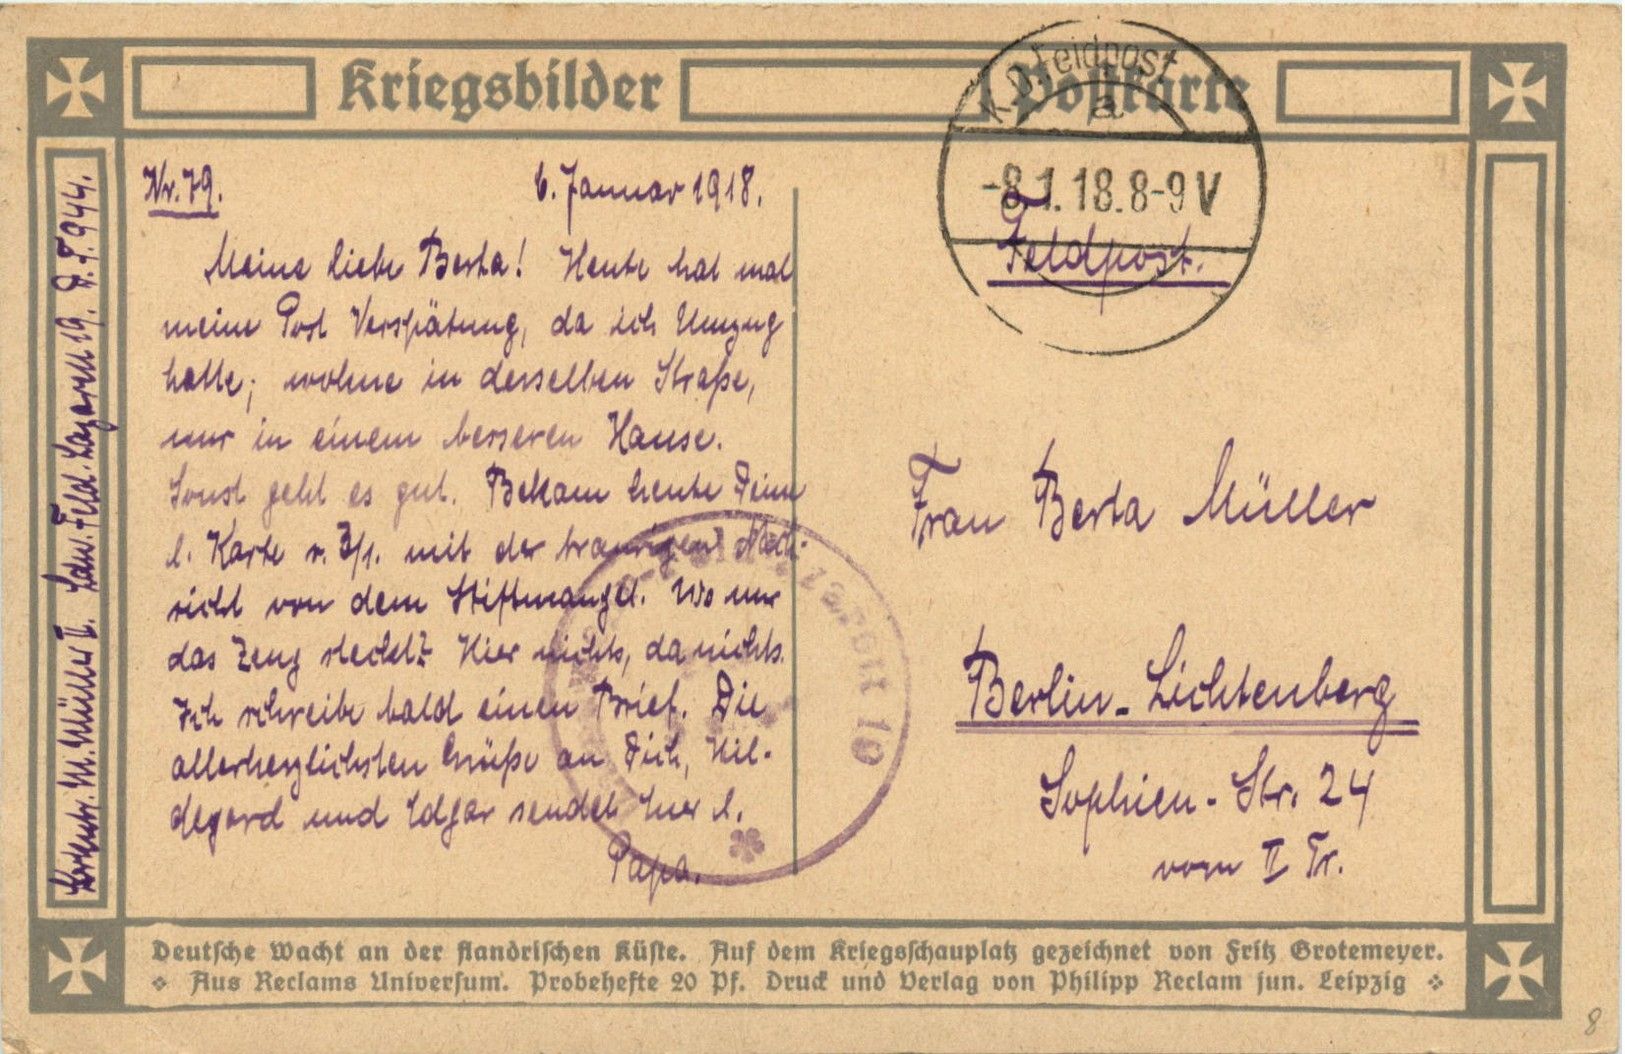 Kriegsbilder Postkarte
K.D. Feldpost
a
-8.1.18.8-9V
Feldpost.
Nr. 79. 6. Januar 1918.
Meine liebe Berta! Heute hat mal
meine Post Verspätung, da ich Umzug
hatte; wohne in derselben Straße,
nur in einem besseren Hause.
Sonst geht es gut. Bekam heute Deine
l. Karte v. 3/1. mit der traurigen Nach-
richt von dem Stiftmangel. Wo nur
das Zeug steckt? Hier nichts, da nichts.
Ich schreibe bald einen Brief. Die
allerherzlichsten Grüße an Dich, Hil-
degard und Edgar sendet Euer l.
Papa.
M. Müller II. Ldw. Feld-Lazarett 19. D.F. 944.
Frau Berta Müller
Berlin-Lichtenberg
Sophien-Str. 24
vorn II Tr.
Lazarett 19
Deutsche Wacht an der flandrischen Küste. Auf dem Kriegsschauplatz gezeichnet von Fritz Grotemeyer.
Aus Reclams Universum. Probehefte 20 Pf. Druck und Verlag von Philipp Reclam jun. Leipzig
8